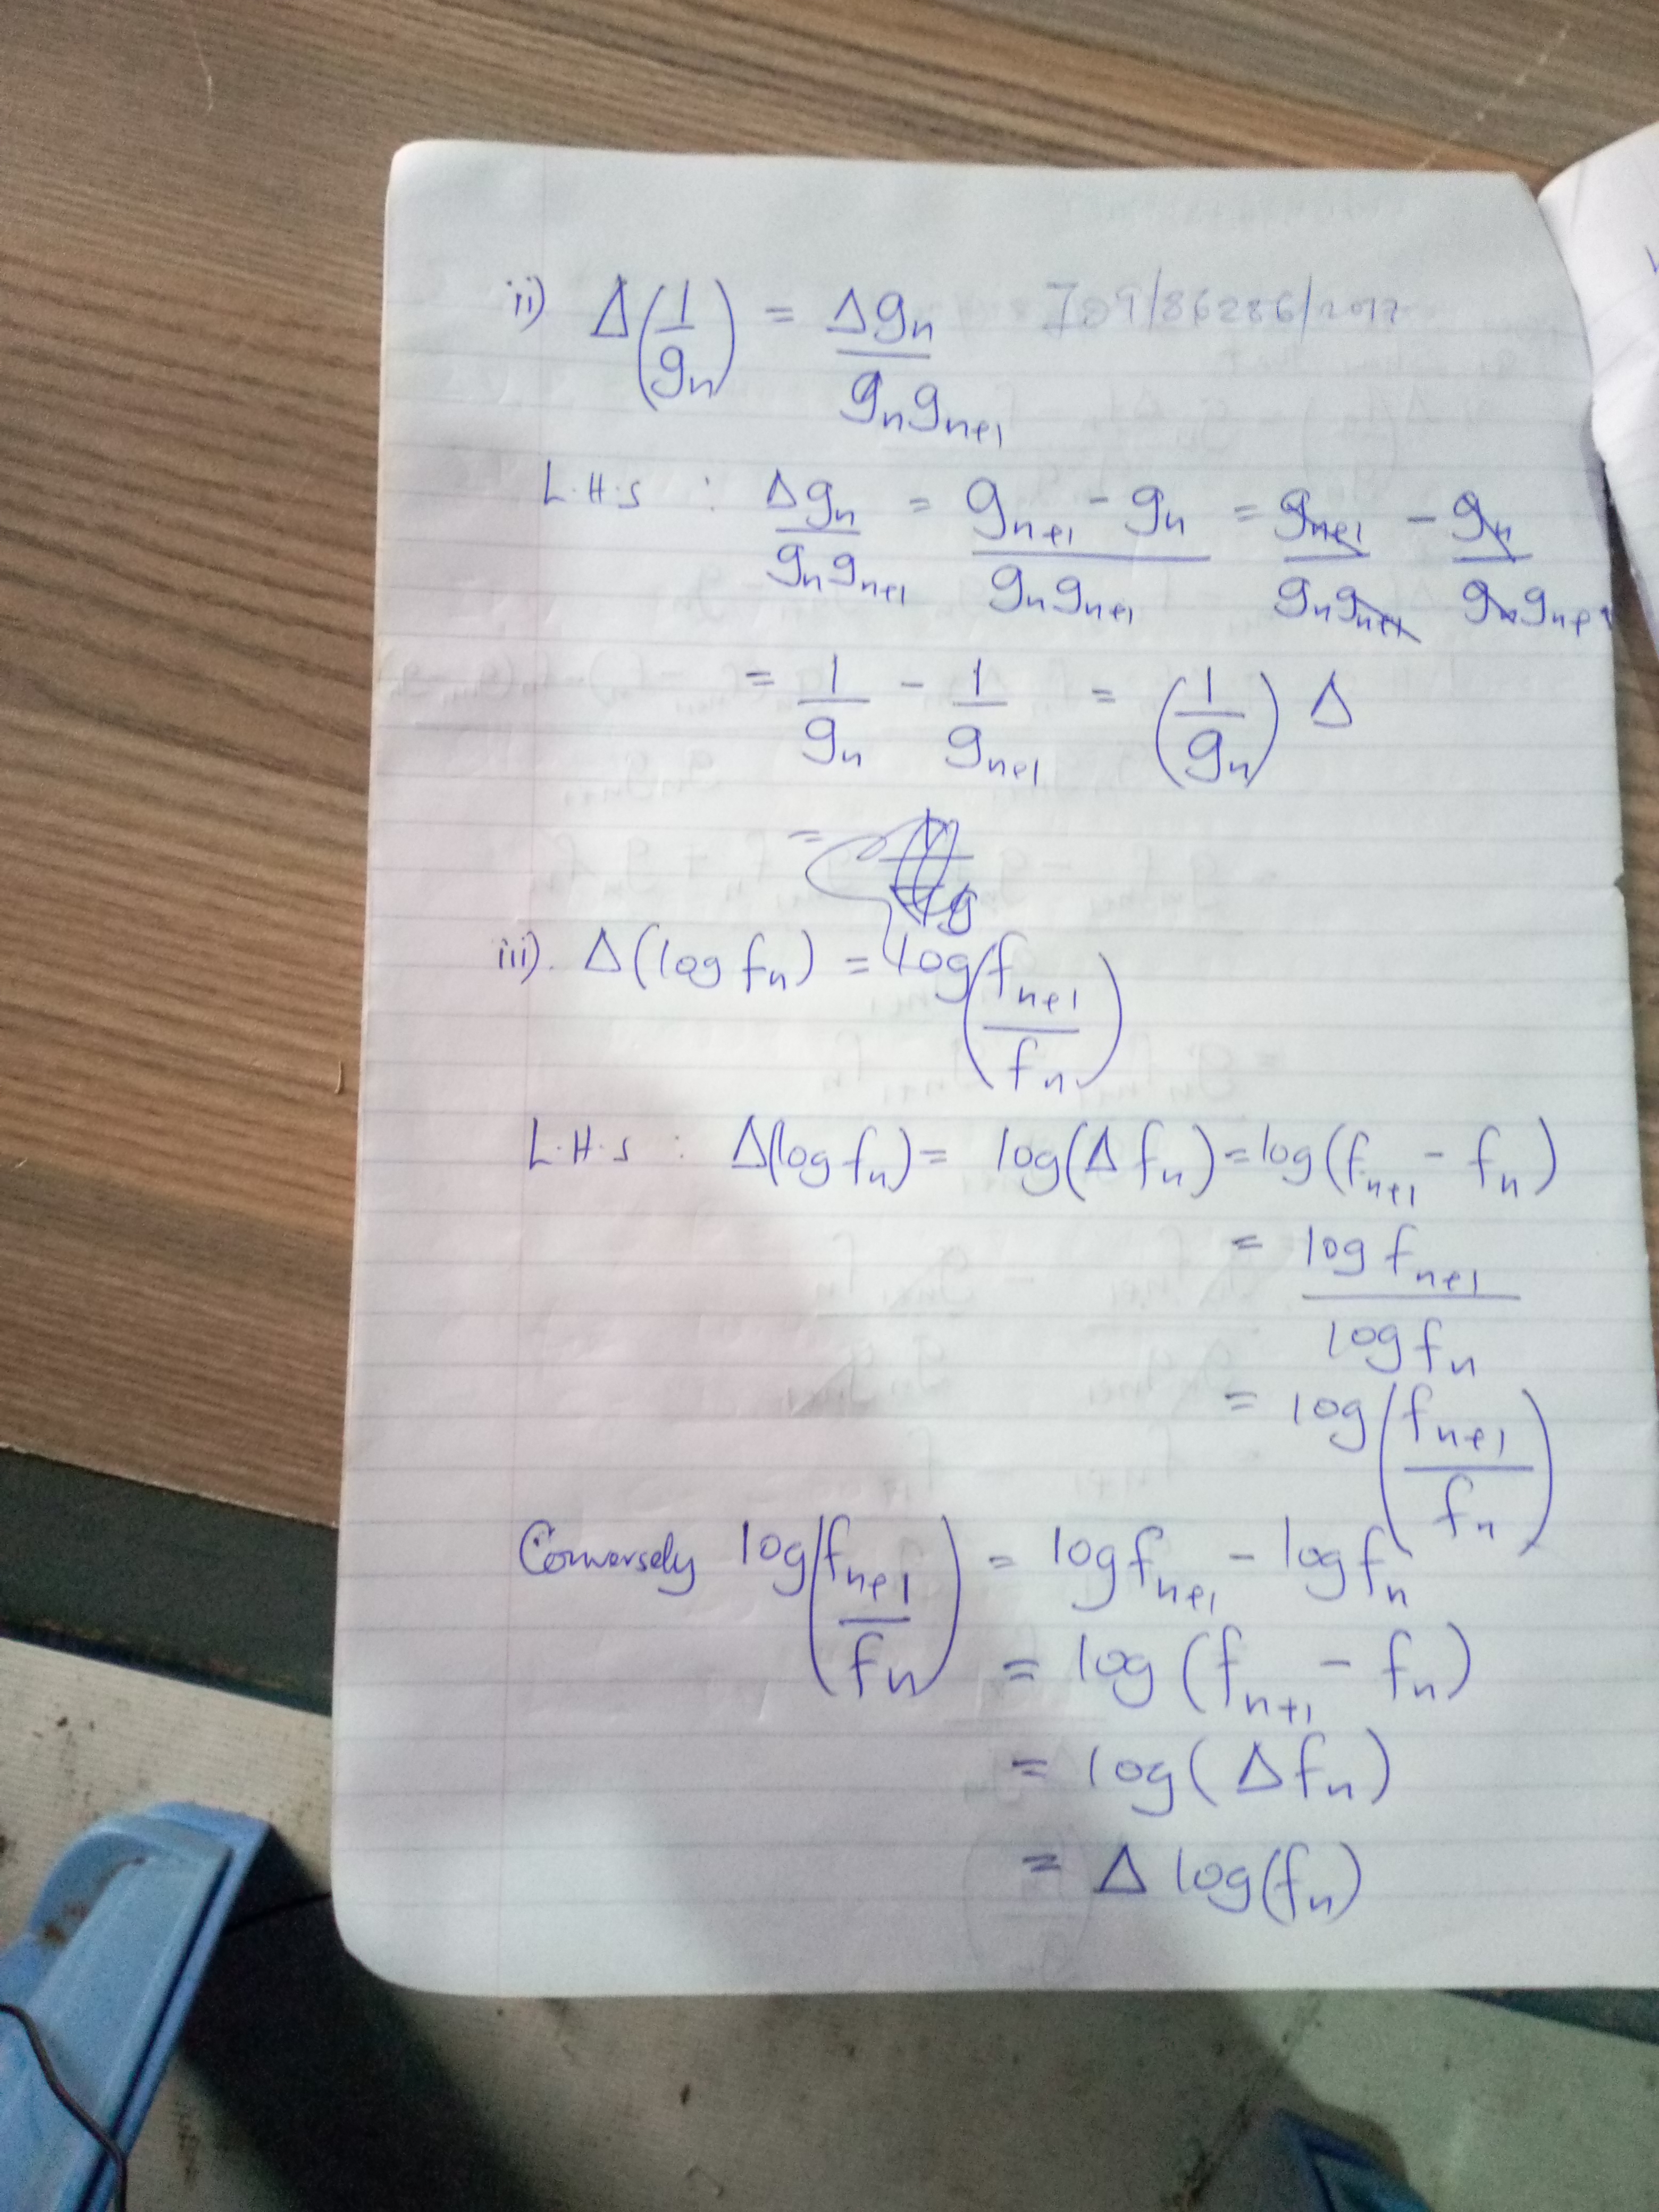 ii) Δ(1/gn) = Δgn/gngn+1 I09/86286/2017
L.H.S : Δgn/gngn+1 = gn+1 - gn/gngn+1 = gn+1/gngn+1 - gn/gngn+1
= 1/gn - 1/gn+1 = (1/gn) Δ
=
iii). Δ(log fn) = log(fn+1/fn)
L.H.S : Δ(log fn) = log(Δ fn) = log(fn+1 - fn)
= log fn+1/log fn
= log(fn+1/fn)
Conversely log(fn+1/fn) = log fn+1 - log fn
= log (fn+1 - fn)
= log(Δfn)
= Δ log(fn)